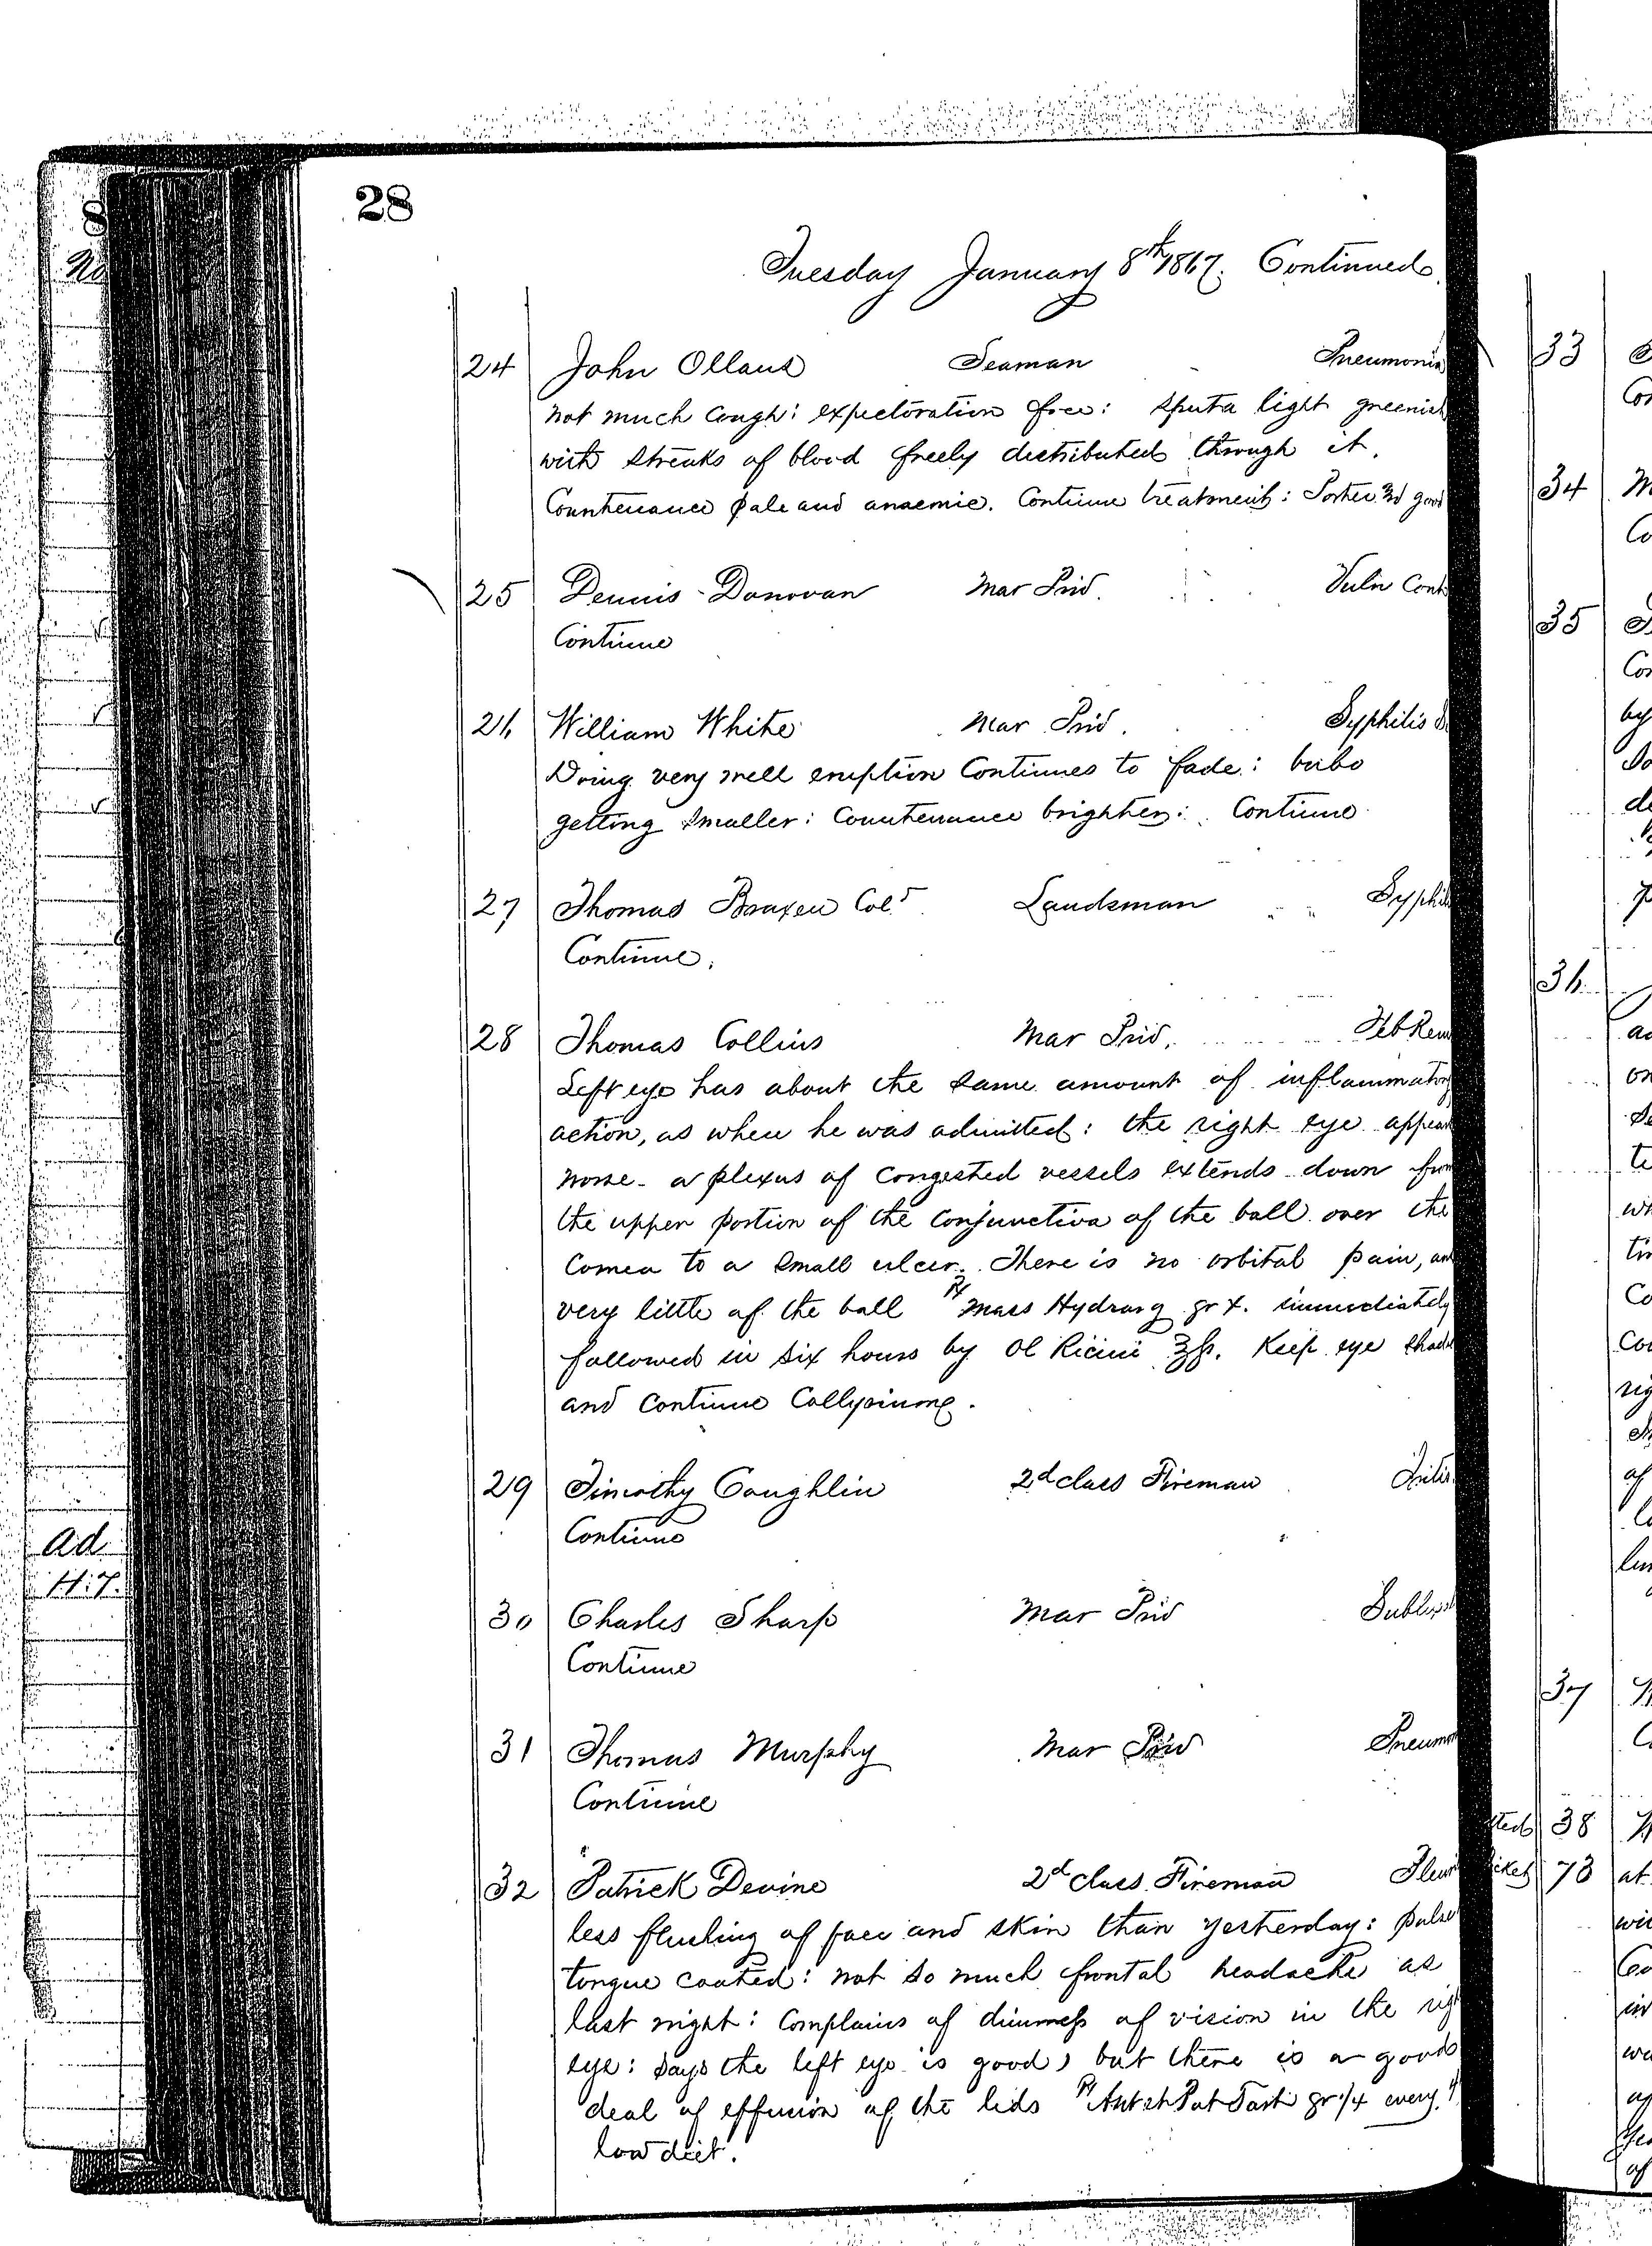 28
Tuesday January 8th 1867. Continued.
24 John Ollaus Seaman Pneumonia
not much cough: expectoration free: sputa light greenish
with streaks of blood freely distributed through it.
Countenance pale and anaemic. Continue treatment: Porter and good
25 Dennis Donovan Mar Priv. Vuln Cont
Continue
26 William White Mar Priv. Syphilis
Doing very well eruption Continues to fade: bubo
getting smaller: Countenance brighter: Continue
27 Thomas Braxen Cold Landsman Syphil
Continue.
28 Thomas Collins Mar Priv. Feb Rem
Left eye has about the same amount of inflammatory
action, as when he was admitted: the right eye appear
worse - a plexus of congested vessels extends down from
the upper portion of the conjunctiva of the ball over the
Cornea to a small ulcer. There is no orbital pain, and
very little of the ball ℞ Mass Hydrarg gr x. immediately
followed in six hours by Ol Ricini ℥ss. Keep eye shade
and continue Collyrium.
29 Timothy Coughlin 2d class Fireman Iritis
Continue
30 Charles Sharp Mar Priv Sublux
Continue
31 Thomas Murphy Mar Priv Pneumon
Continue
32 Patrick Devine 2d class Fireman Pleur
less flushing of face and skin than yesterday: pulse
tongue coated: not so much frontal headache as
last night: Complains of dimness of vision in the righ
eye: says the left eye is good, but there is a good
deal of effusion of the lids ℞ Ant et Pot Tart gr 1/4 every
low diet.
8
No
ad
H.T.
33
34
35
36
37
38
73